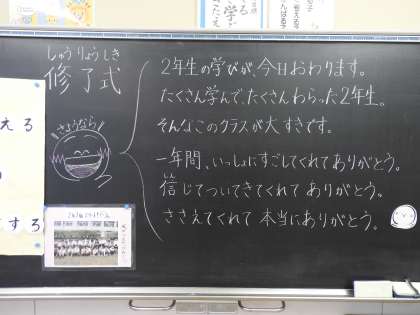 しゅうりょうしき
修了式
さようなら
2年生の学びが、今日おわります。
たくさん学んで、たくさんわらった2年生。
そんなこのクラスが大すきです。
一年間、いっしょにすごしてくれてありがとう。
信じてついてきてくれて ありがとう。
ささえてくれて 本当にありがとう。
える
する